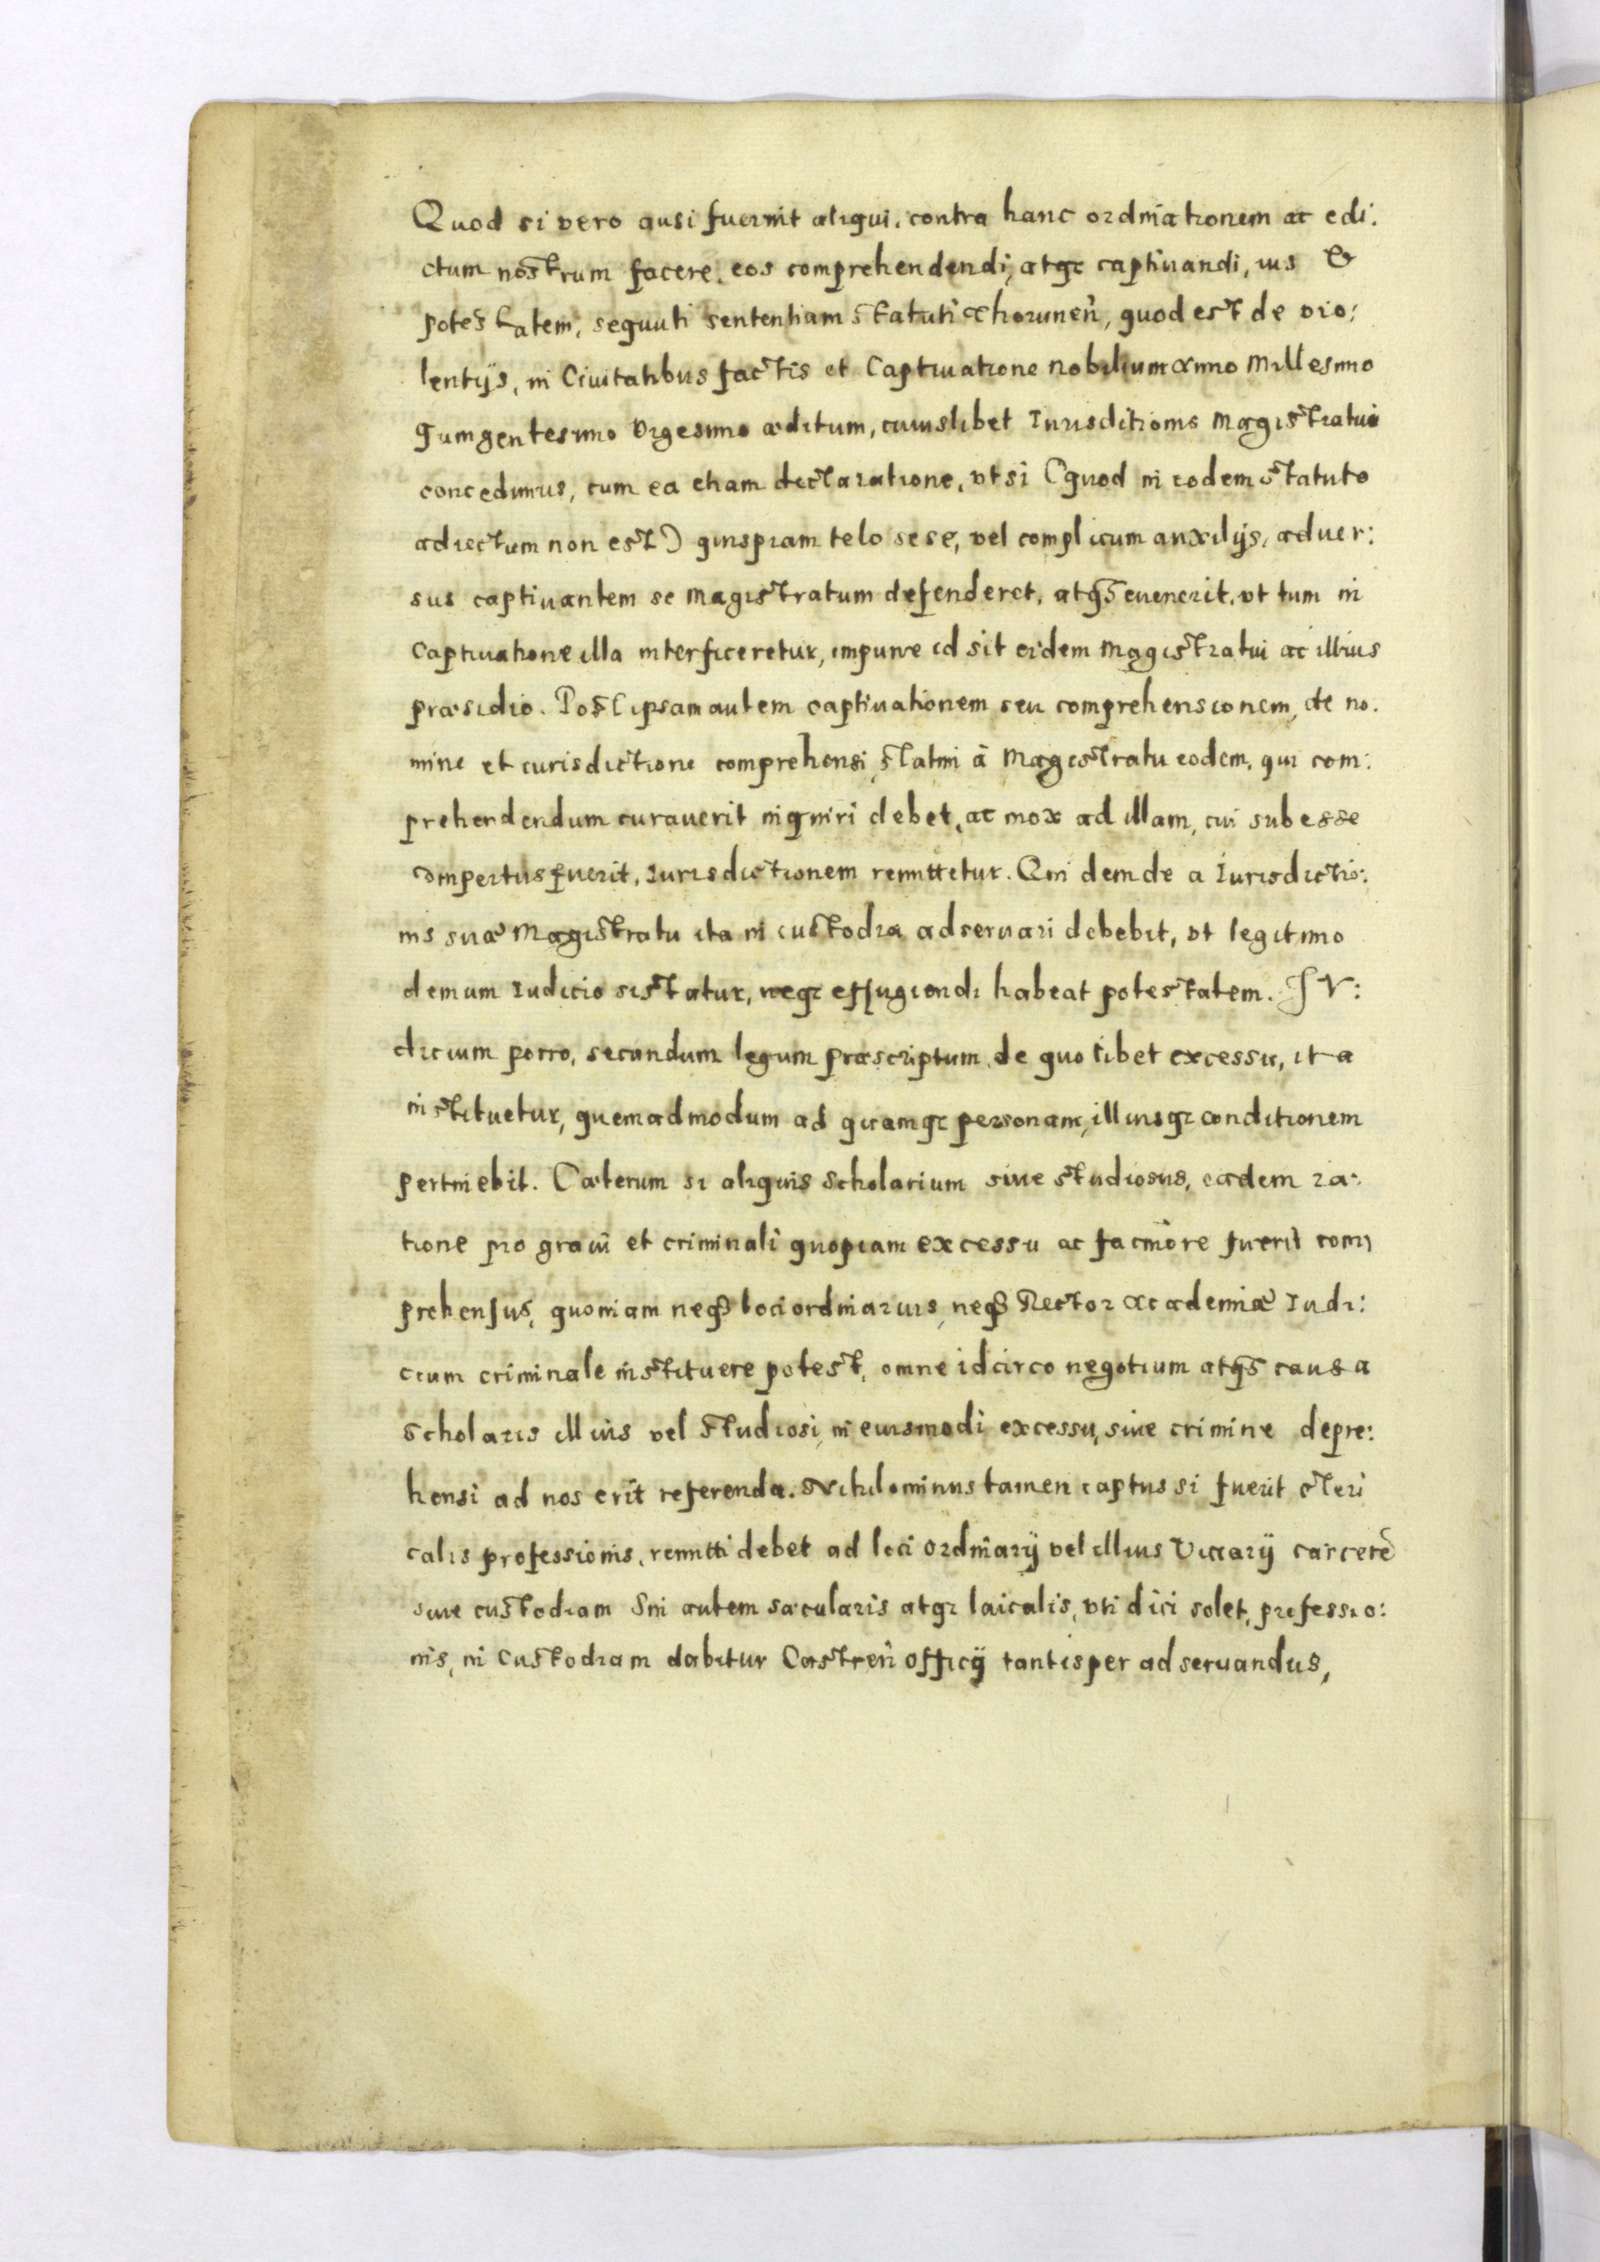 Quod si vero ausi fuerint aliqui, contra hanc ordinationem ac edi:
ctum nostrum facere, eos comprehendendi, atq; captiuandi, ius &
potestatem, sequuti sententiam statuti Thorunen̄, quod est de vio:
lentijs, in Ciuitatibus factis et Captiuatione nobilium anno Millesimo
Quingentesimo Vigesimo æditum, cuiuslibet Iurisditionis Magistratui
concedimus, cum ea etiam declaratione, vt si (quod in eodem statuto
adiectum non est) quispiam telo sese, vel complicum auxilijs, aduer:
sus captiuantem se Magistratum defenderet, atq; euenerit, vt tum in
Captiuatione illa interficeretur, impune id sit eidem Magistratui ac illius
præsidio. Post ipsam autem captiuationem seu comprehensionem, de no:
mine et iurisdictione comprehensi, statim à Magistratu eodem, qui com:
prehendendum curauerit inquiri debet, ac mox ad illam, cui subesse
compertus fuerit, Iurisdictionem remittetur. Qui deinde a Iurisdictio:
nis suæ Magistratu ita in custodia adseruari debebit, vt legitimo
demum Iudicio sistatur, neq; effugiendi habeat potestatem. IV:
dicium porro, secundum legum præscriptum, de quo libet excessu, ita
instituetur, quemadmodum ad quamq; personam, illiusq; conditionem
pertinebit. Cæterum si aliquis scholarium siue studiosus, eadem ra:
tione pro graui et criminali quopiam excessu ac facinore fuerit com:
prehensus, quoniam neq; loci ordinarius, neq; Rector Academiæ Iudi:
cium criminale instituere potest, omne idcirco negotium atq; causa
scholaris illius vel studiosi, in eiusmodi excessu, siue crimine depre:
hensi ad nos erit referenda. Nihilominus tamen captus si fuerit cleri
calis professionis, remitti debet ad loci ordinarij vel illius Vicarij carcerē
siue custodiam Sin autem sæcularis atq; laicalis, vti dici solet, professio:
nis, in Custodiam dabitur Castren̄ officij tantisper adseruandus,